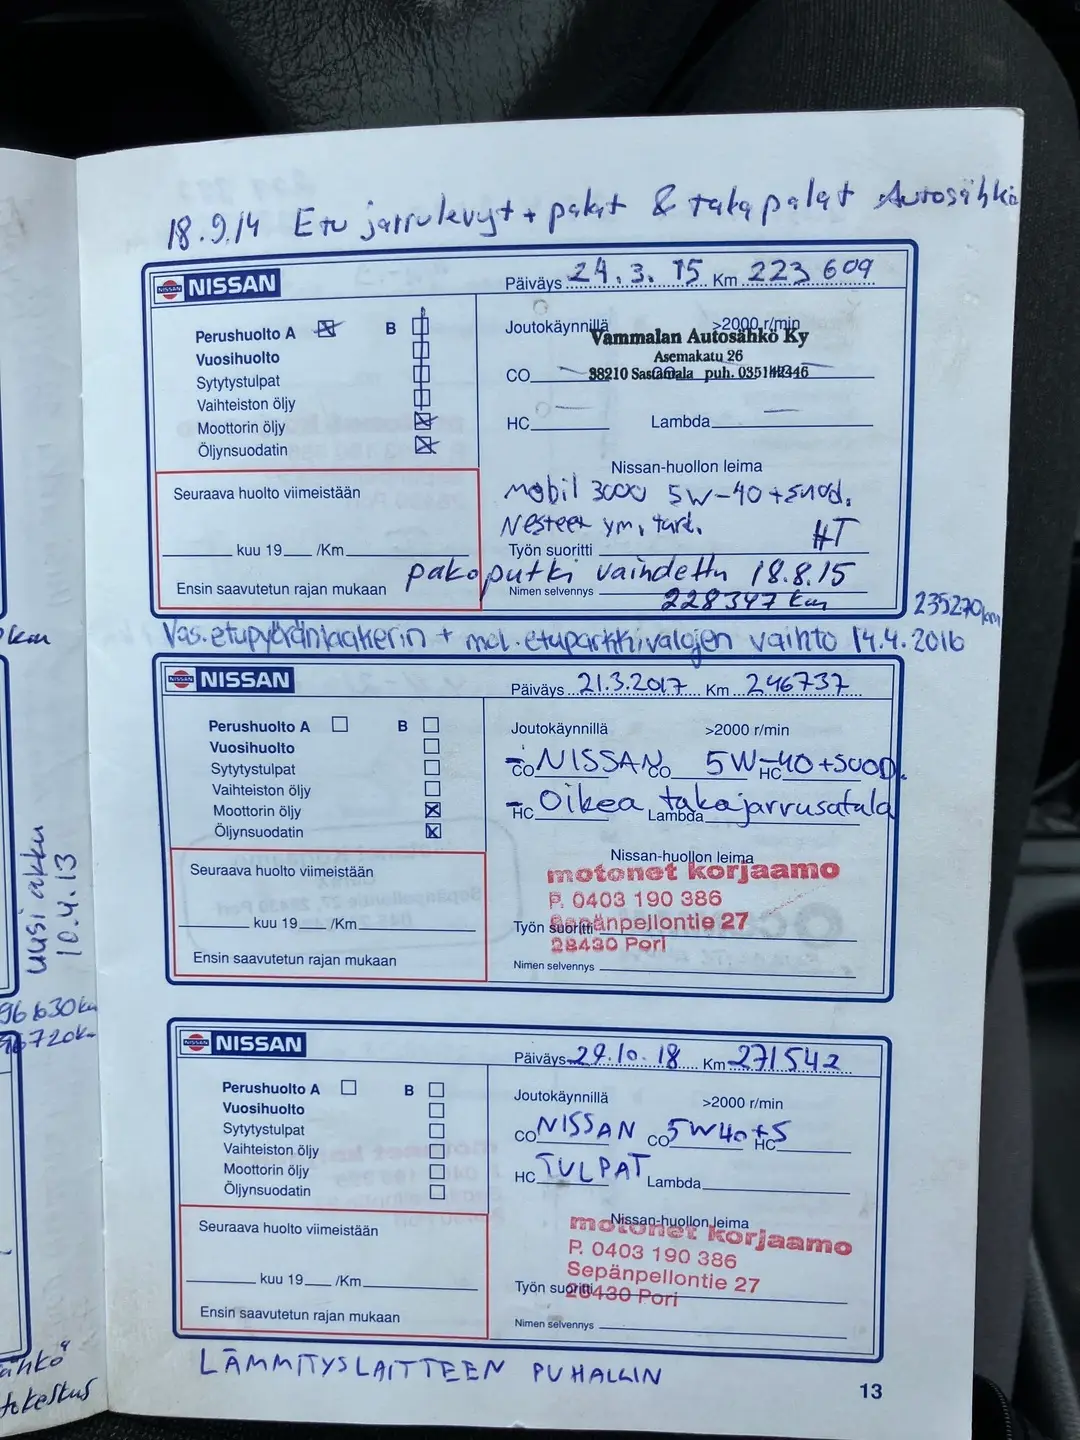 18.9.14 Etu jarrulevyt + palat & takapalat Autosähkö
NISSAN
Päiväys 24.3.15 Km 223 609
Perushuolto A B
Vuosihuolto
Sytytystulpat
Vaihteiston öljy
Moottorin öljy
Öljynsuodatin
Joutokäynnillä >2000 r/min
Vammalan Autosähkö Ky
Asemakatu 26
CO CO
38210 Sastamala puh.
HC Lambda
Nissan-huollon leima
Mobil 3000 5W-40 + suod.
Nesteet ym. tark.
HT
Työn suoritti
Seuraava huolto viimeistään
kuu 19 /Km
Ensin saavutetun rajan mukaan
pakoputki vaihdettu 18.8.15
Nimen selvennys
228347 km
235270km
Vas. etupyöränlaakerin + mol. etuparkkivalojen vaihto 14.4.2016
NISSAN
Päiväys 21.3.2017 Km 246737
Perushuolto A B
Vuosihuolto
Sytytystulpat
Vaihteiston öljy
Moottorin öljy
Öljynsuodatin
Joutokäynnillä >2000 r/min
- NISSAN 5W-40 + SUOD.
CO CO HC
- Oikea takajarrusatula
HC Lambda
Nissan-huollon leima
motonet korjaamo
P. 0403 190 386
Sepänpellontie 27
Työn suoritti
28430 Pori
Nimen selvennys
Seuraava huolto viimeistään
kuu 19 /Km
Ensin saavutetun rajan mukaan
uusi akku
10.4.13
96630km
96720km
NISSAN
Päiväys 29.10.18 Km 271542
Perushuolto A B
Vuosihuolto
Sytytystulpat
Vaihteiston öljy
Moottorin öljy
Öljynsuodatin
Joutokäynnillä >2000 r/min
CO NISSAN CO 5W40+S HC
HC TULPAT Lambda
Nissan-huollon leima
motonet korjaamo
P. 0403 190 386
Sepänpellontie 27
Työn suoritti
28430 Pori
Nimen selvennys
Seuraava huolto viimeistään
kuu 19 /Km
Ensin saavutetun rajan mukaan
LÄMMITYSLAITTEEN PUHALLIN
13